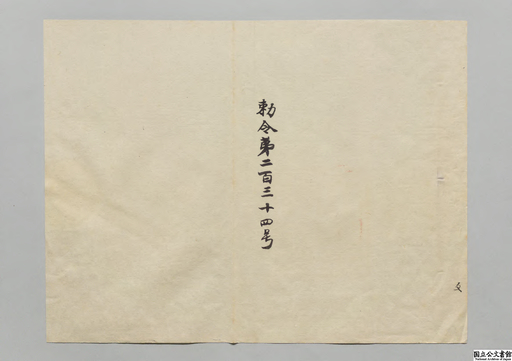 勅令第二百三十四号
国立公文書館
National Archives of Japan